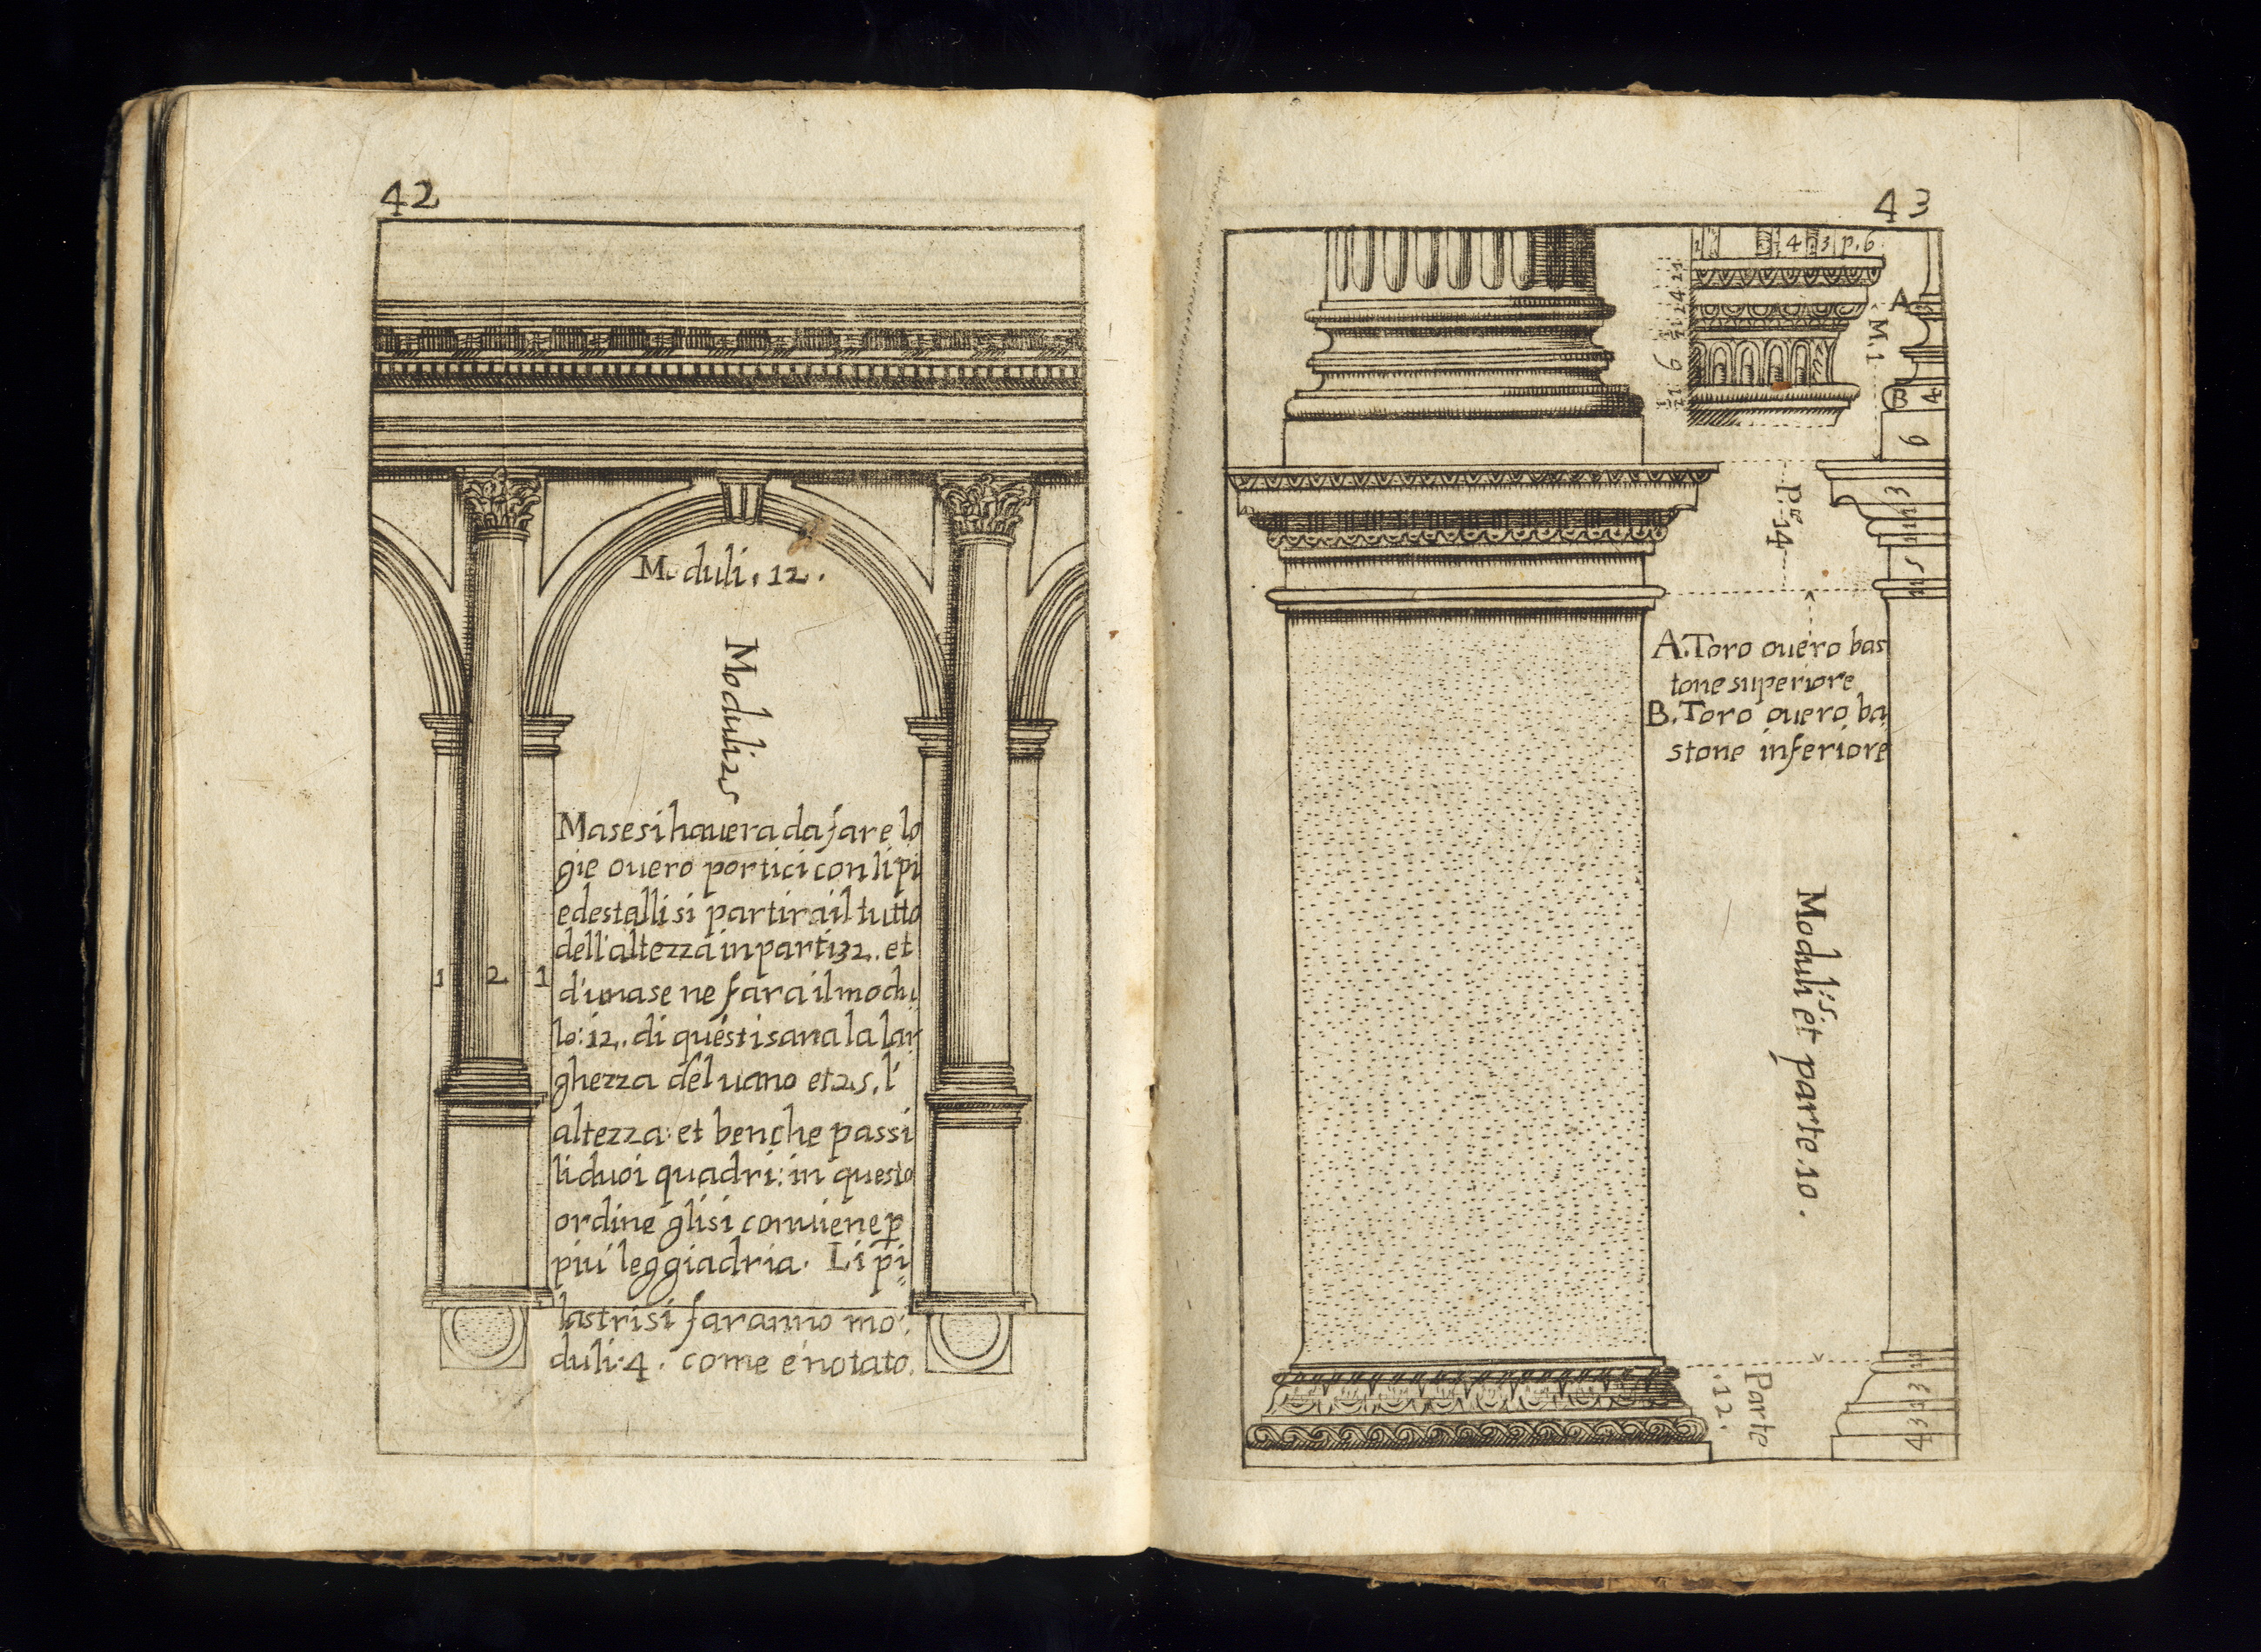 42
Moduli. 12.
Moduli 25
Ma se si hauera da fare lo
gie ouero portici con li pi
edestalli si partira il tutto
dell'altezza in parti 32. et
d'una se ne fara il modu
lo: 12. di questi sara la lar
ghezza del uano et 25. l'
altezza: et benche passi
li duoi quadri: in questo
ordine gli si conuiene p
piu leggiadria. Li pi
lastri si faranno mo:
duli. 4. come e notato.
1 2 1
43
1 4 3 p. 6
A
M. 1
6
B 4
6
3
P.te 14
5
A. Toro ouero bas
tone superiore
B. Toro ouero ba
stone inferiore
Moduli 5. et parte. 10.
Parte
.12.
3
3
4